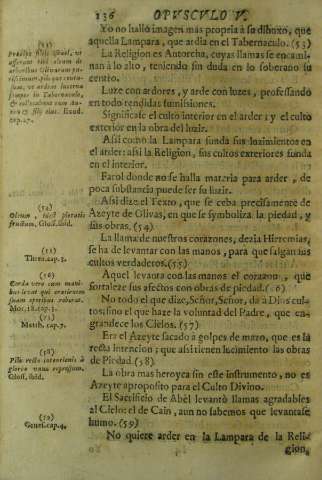 136 OPUSCULO V.
Yo no hallò imagen màs propria à su dibuxo, que
aquella Lampara, que ardia en el Tabernaculo. (53)
La Religion es Antorcha, cuyas llamas se encami-
nan à lo alto, teniendo sin duda en lo soberano su
centro.
Luze con ardores, y arde con luzes, professando
en todo rendidas sumissiones.
Significase el culto interior en el arder: y el culto
exterior en la obra del luzir.
Assi como la Lampara funda sus luzimientos en
el arder: assi la Religion, sus cultos exteriores funda
en el interior.
Farol donde no se halla materia para arder, de
poca substancia puede ser su luzir.
Assi dize el Texto, que se ceba precisamente de
Azeyte de Olivas, en que se symboliza la piedad, y
sus obras. (54)
La llama de nuestros corazones, dezia Hieremias,
se ha de levantar con las manos, para que salgan sus
cultos verdaderos. (55)
Aquel levanta con las manos el corazon, que
fortaleze sus afectos con obras de piedad. (56)
No todo el que dize, Señor, Señor, dà à Dios cul-
tos; sino el que haze la voluntad del Padre, que en-
grandece los Cielos. (57)
Era el Azeyte sacado à golpes de mazo, que es la
recta intencion; que assi tienen lucimiento las obras
de Piedad. (58)
La obra mas heroyca sin este instrumento, no es
Azeyte aproposito para el Culto Divino.
El Sacrificio de Abèl levantò llamas agradables
al Cielo: el de Cain, aun no sabemos que levantase
humo. (59)
No quiere arder en la Lampara de la Reli-
gion,
(53)
Præcipe filijs Israel, ut
afferant tibi oleum de
arboribus
cap. 27.
(54)
Oleum, idest pietatis
fructum, Glos. ibid.
(55)
Thren. cap. 3.
(56)
Corda vero cum mani-
bus levat qui orationem
suam operibus roborat.
Mor. 18. cap. 3.
(57)
Matth. cap. 7.
(58)
Pilo recta intentionis à
gloria vana expressum.
Glos. ibid.
(59)
Genes. cap. 4.